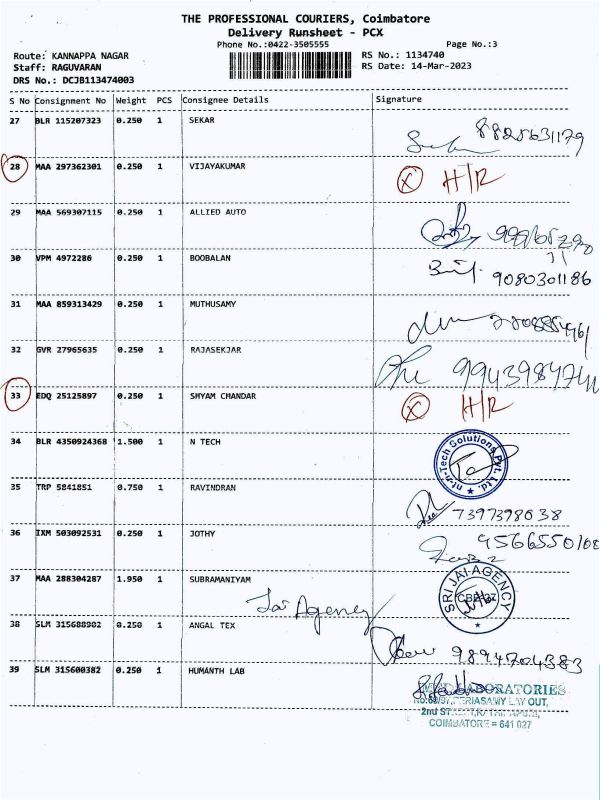 THE PROFESSIONAL COURIERS, Coimbatore
Delivery Runsheet - PCX
Phone No.:0422-3505555 Page No.:3
Route: KANNAPPA NAGAR RS No.: 1134740
Staff: RAGUVARAN RS Date: 14-Mar-2023
DRS No.: DCJB113474003
S No Consignment No Weight PCS Consignee Details Signature
27 BLR 115207323 0.250 1 SEKAR
8825631179
28 MAA 297362301 0.250 1 VIJAYAKUMAR
X H/R
29 MAA 569307115 0.250 1 ALLIED AUTO
30 VPM 4972286 0.250 1 BOOBALAN
9080301186
31 MAA 859313429 0.250 1 MUTHUSAMY
32 GVR 27965635 0.250 1 RAJASEKJAR
33 EDQ 25125897 0.250 1 SHYAM CHANDAR
X H/R
34 BLR 4350924368 1.500 1 N TECH
nt-n-Tech Solutions Pvt. Ltd.
35 TRP 5841851 0.750 1 RAVINDRAN
7397398038
36 IXM 503092531 0.250 1 JOTHY
37 MAA 288304287 1.950 1 SUBRAMANIYAM
Jai Agency
SRI JAI AGENCY
38 SLM 315688902 0.250 1 ANGAL TEX
9894704383
39 SLM 315600382 0.250 1 HUMANTH LAB
LABORATORIES
LAY OUT,
2nd
COIMBATORE = 641 027